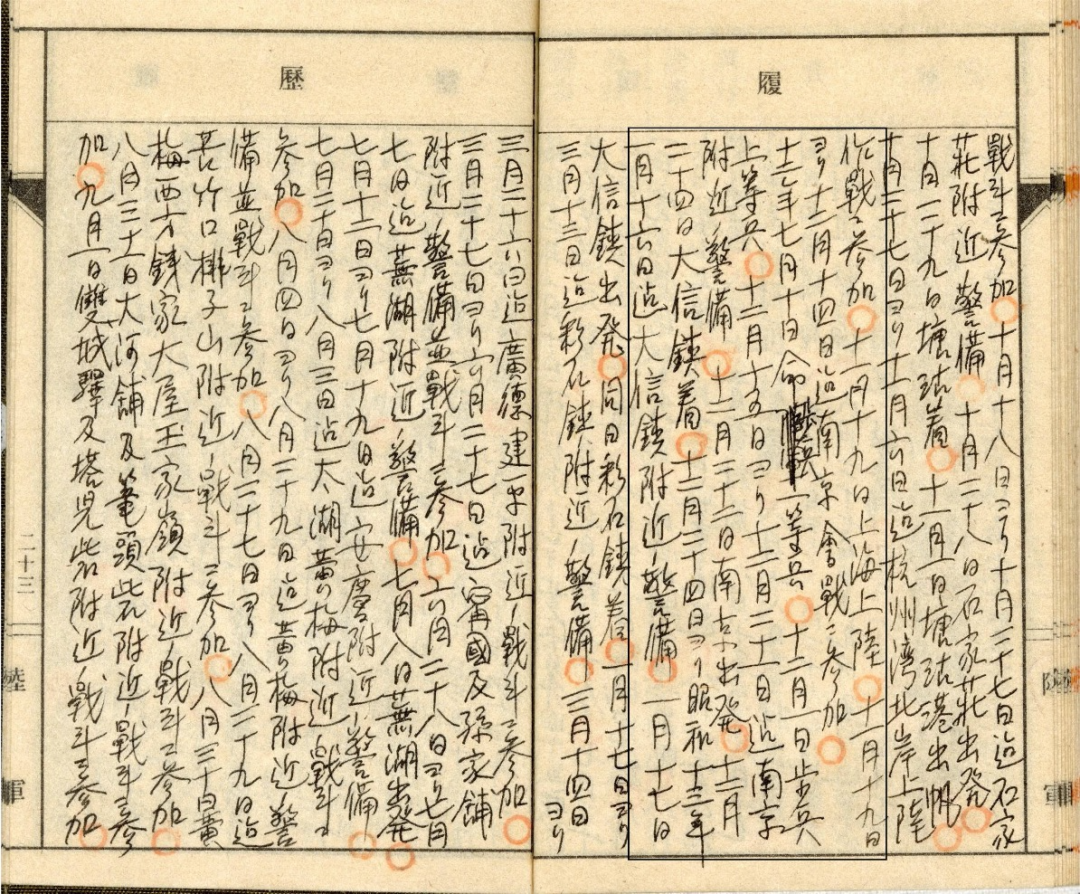 履
戰斗ニ参加 十月十八日ヨリ十月二十七日迠石家
莊附近ノ警備 十月二十八日石家莊出発
十月二十九日塘沽着 十一月一日塘沽港出帆
十月二十七日ヨリ十一月六日迠杭州湾北岸上陸
作戰ニ参加 十一月十九日上海上陸 十一月十九日
ヨリ十二月十四日迠南京會戰ニ参加
十二年七月十日命 一等兵 十二月一日歩兵
上等兵 十二月十五日ヨリ十二月二十一日迠南京
附近ノ警備 十二月二十二日南京出発 十二月
二十四日大信鎮着 十二月二十四日ヨリ昭和十三年
一月十六日迠大信鎮附近ノ警備 一月十七日
大信鎮出発 同日彩石鎮着 一月十七日ヨリ
三月十三日迠彩石鎮附近ノ警備 三月十四日ヨリ
歷
三月二十六日迠廣德建平附近ノ戰斗ニ参加
三月二十七日ヨリ六月二十七日迠甯國及孫家舖
附近ノ警備並戰斗ニ参加 六月二十八日ヨリ七月
七日迠蕪湖附近ノ警備 七月八日蕪湖出発
七月十二日ヨリ七月十九日迠安慶附近ノ警備
七月二十日ヨリ八月三日迠太湖黄梅附近ノ戰斗ニ
参加 八月四日ヨリ八月二十九日迠黄梅附近ノ警
備並戰斗ニ参加 八月二十七日ヨリ八月二十九日迠
苦竹口排子山附近ノ戰斗ニ参加 八月三十日黄
梅西方錢家大屋王家嶺附近ノ戰斗ニ参加
八月三十一日大河舖及筆頭岩附近ノ戰斗ニ参
加 九月一日雙城驛及塔兒岩附近ノ戰斗ニ参加
二十三
陸
軍
陸
軍